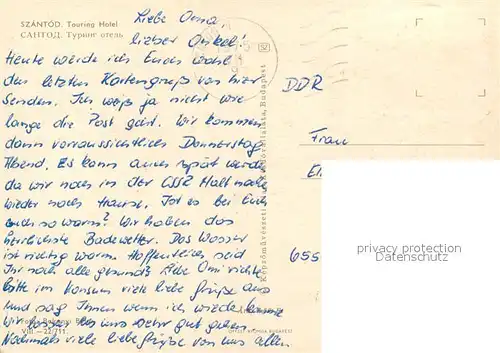 SZÁNTÓD. Touring Hotel
САНТОД. Туринг отель
Liebe Oma,
lieber Onkel!
Heute werde ich Euch wohl
den letzten Kartengruß von hier
senden. Ich weiß ja nicht wie
lange die Post geht. Wir kommen
dann voraussichtlich Donnerstag
Abend. Es kann auch spät werden
da wir noch in der CSSR Halt machen
wieder nach Hause. Ist es bei Euch
auch so warm? Wir haben das
herrlichste Badewetter. Das Wasser
ist richtig warm. Hoffentlich seid
Ihr noch alle gesund? Liebe Omi richte
bitte im Konsum viele liebe Grüße aus
und sag Ihnen wenn ich wieder komme
wir lassen es uns sehr gut gehen.
Nochmals viele liebe Grüße von uns allen
VIII.—22/711.
OFFSET
BUDAPEST
Képzőművészeti
Budapest
DDR
Frau
El
655
privacy protection
Datenschutz